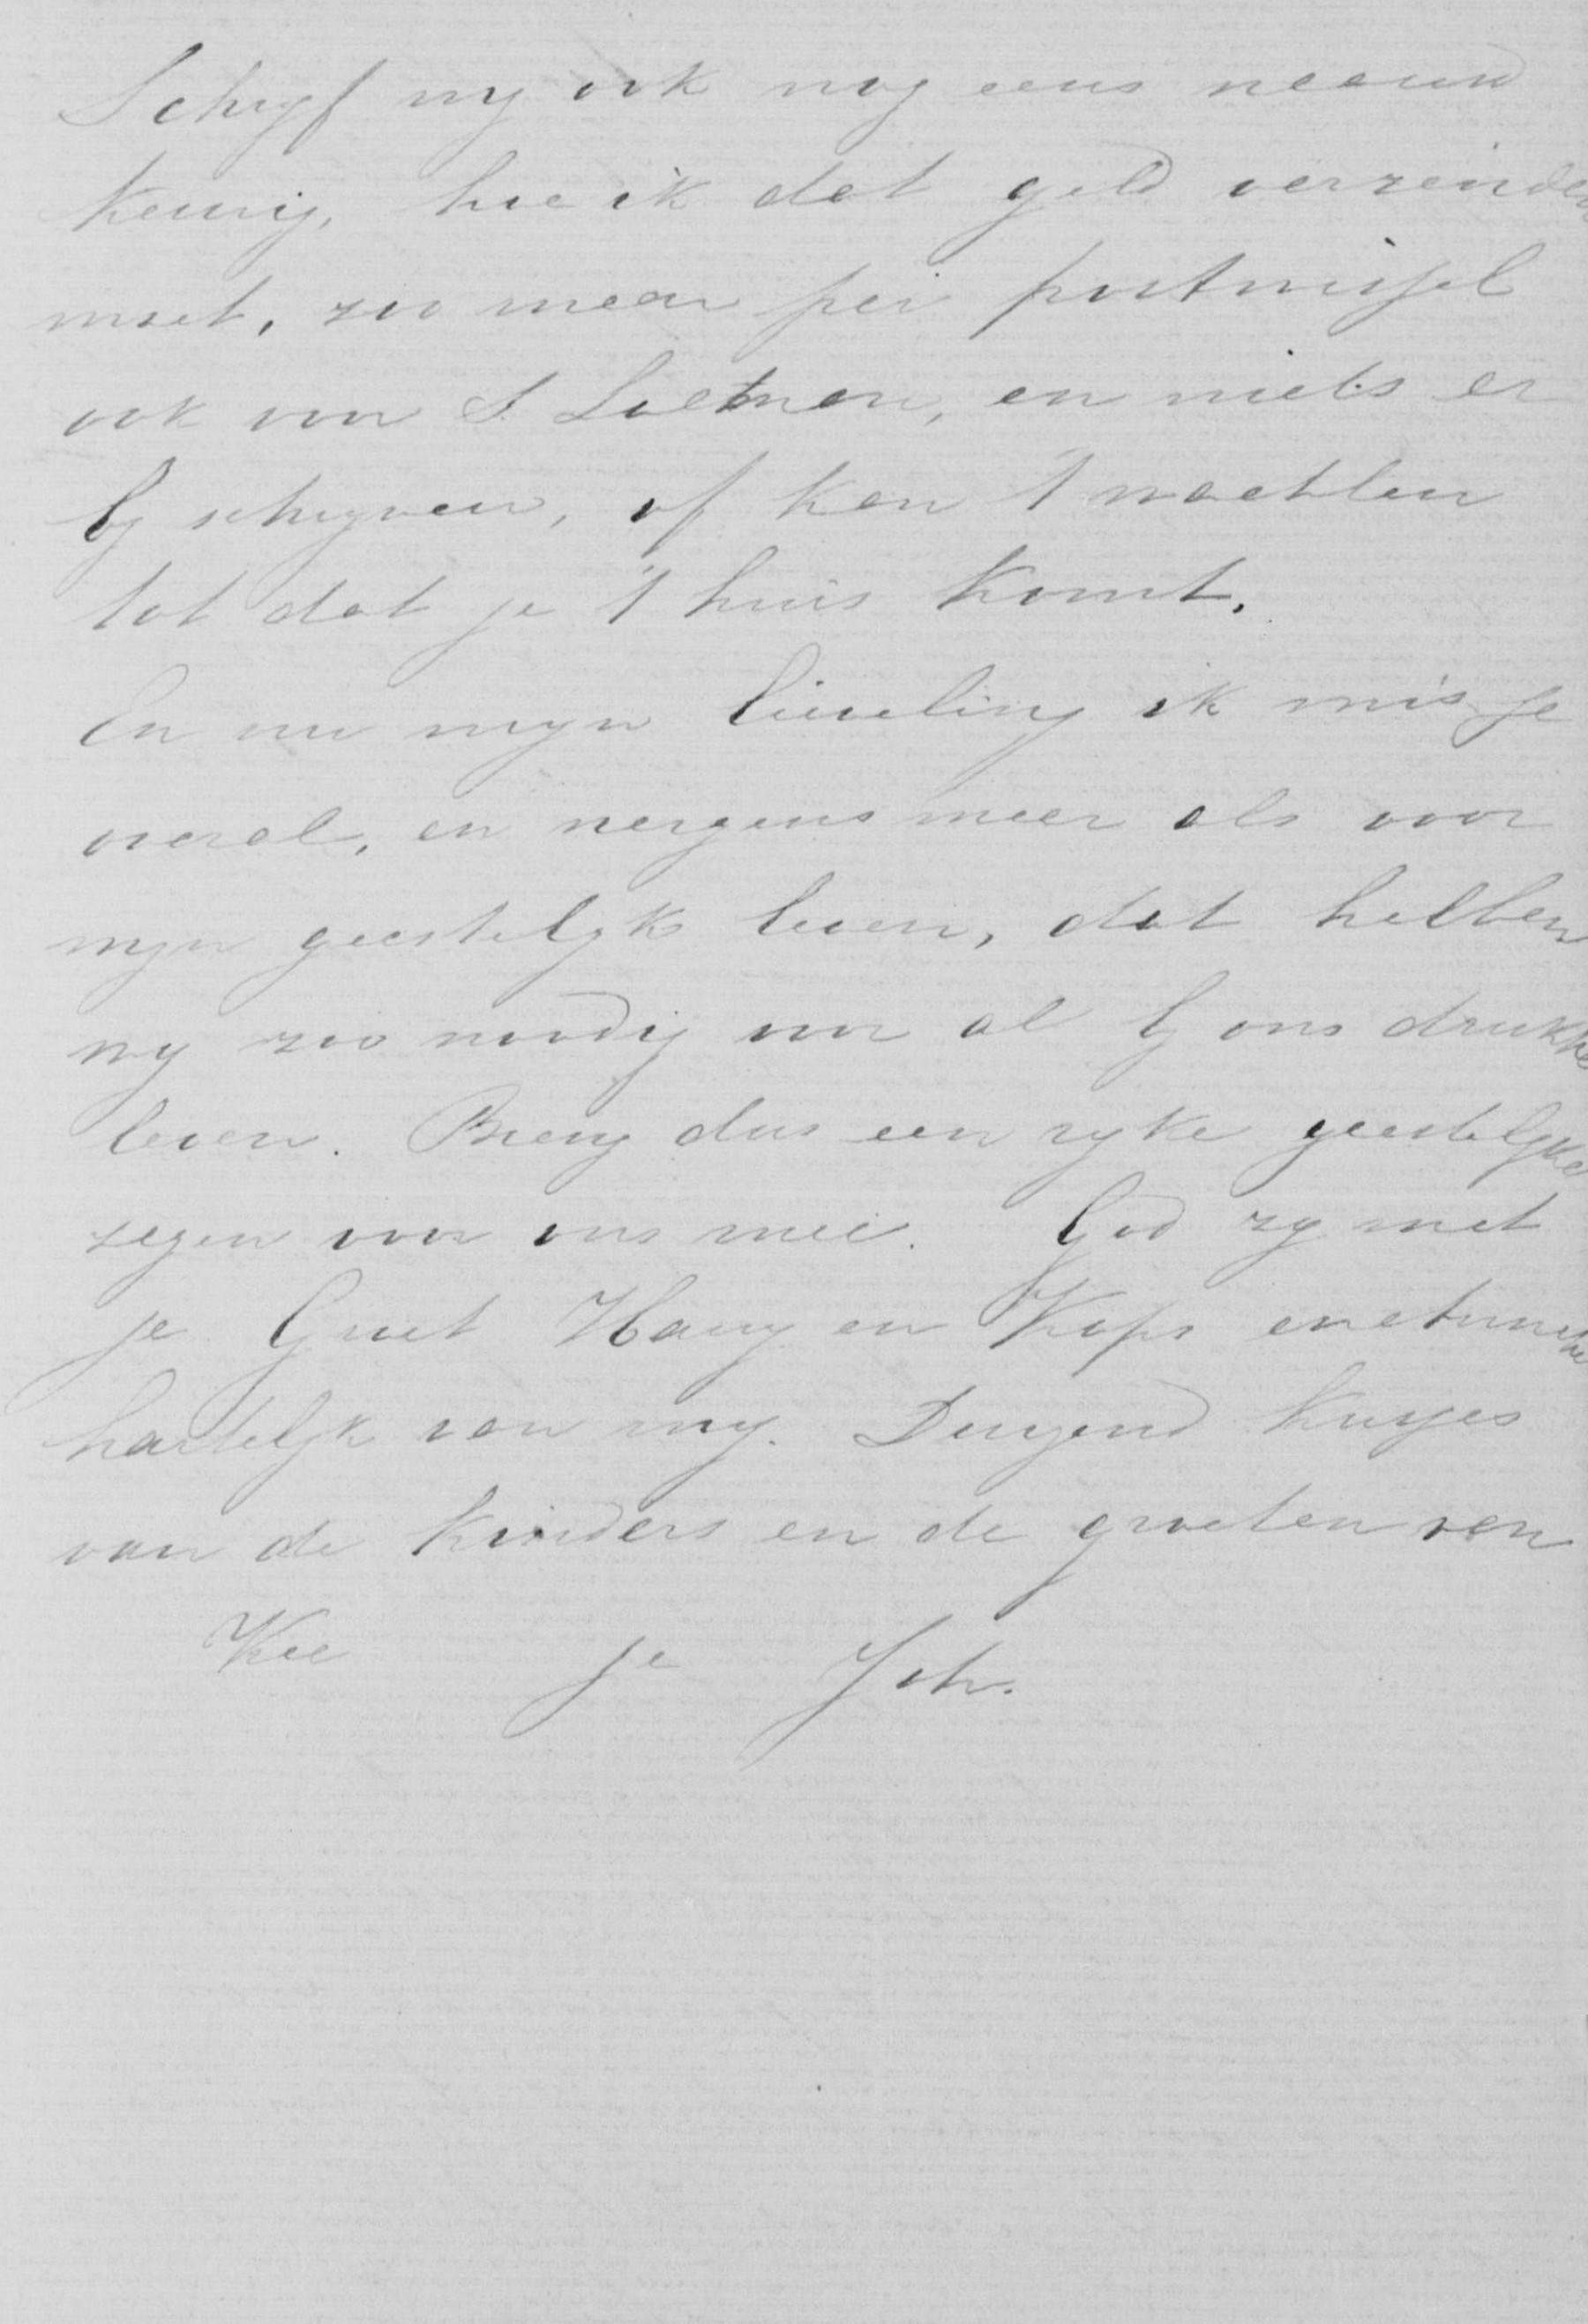 Schryf my ook nog eens naauw
keurig, hoe ik dat geld verzenden
moet, zoo maar per postwissel
ook voor S. Loetman, en niets er
by schryven, of kan 't wachten
tot dat je 't huis komt.
En nu myn lieveling ik mis je
overal, en nergens meer als voor
myn geestelyk leven, dat hebben
wy zoo noodig voor al by ons drukke
leven. Breng dus een ryke geestelyke
zegen voor ons mee. God zy met
je Groet Hany en Kops
hartelyk van my. Duizend kusjes
van de kinders en de groeten van
Kee je Joh.